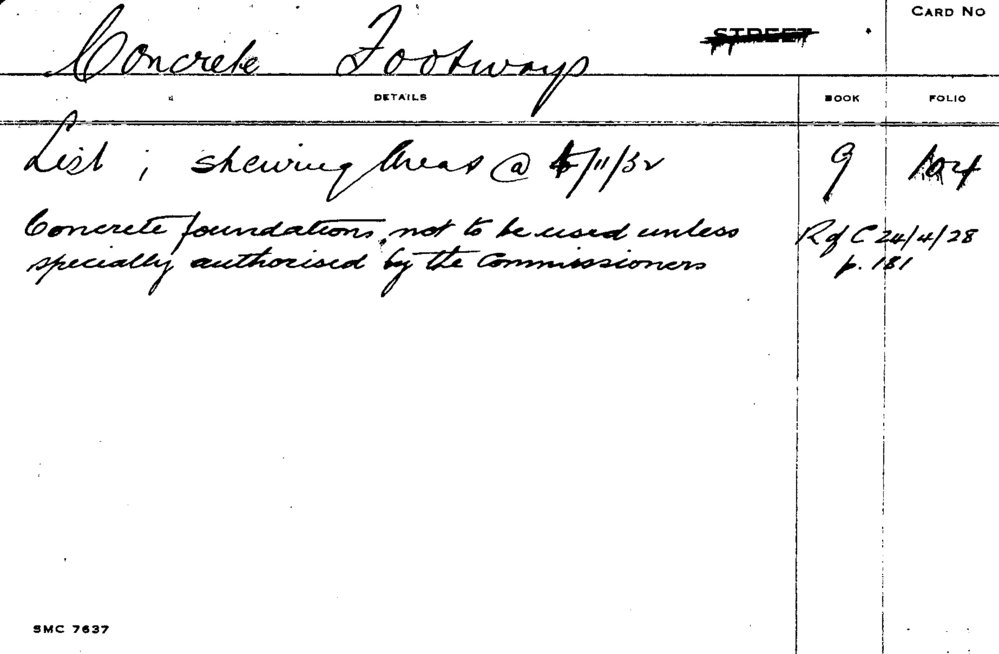 Concrete Footways STREET CARD NO
DETAILS BOOK FOLIO
List ; shewing Areas @ /11/32 9 104
Concrete foundations, not to be used unless R of C 24/4/28
specially authorised by the Commissioners p. 181
SMC 7637